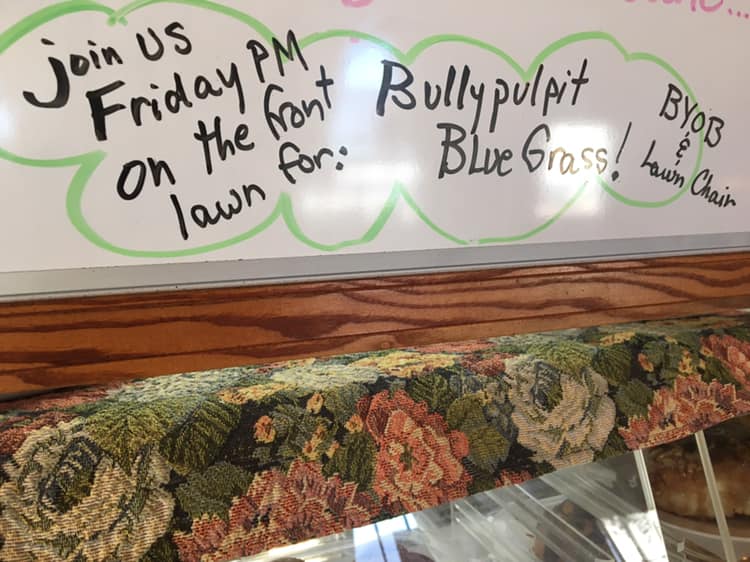 Join us
Friday PM
on the front
lawn for:
Bullypulpit
Blue Grass!
BYOB
&
Lawn Chair